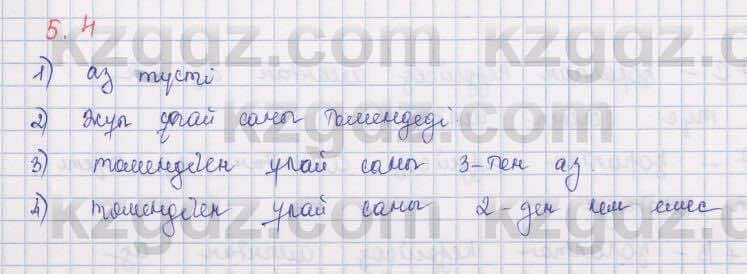 5.4
1) аз түсті
2) Жұп ұпай саны төмендеді.
3) төмендеген ұпай саны 3-тен аз.
4) төмендеген ұпай саны 2-ден кем емес
kzgdz.com